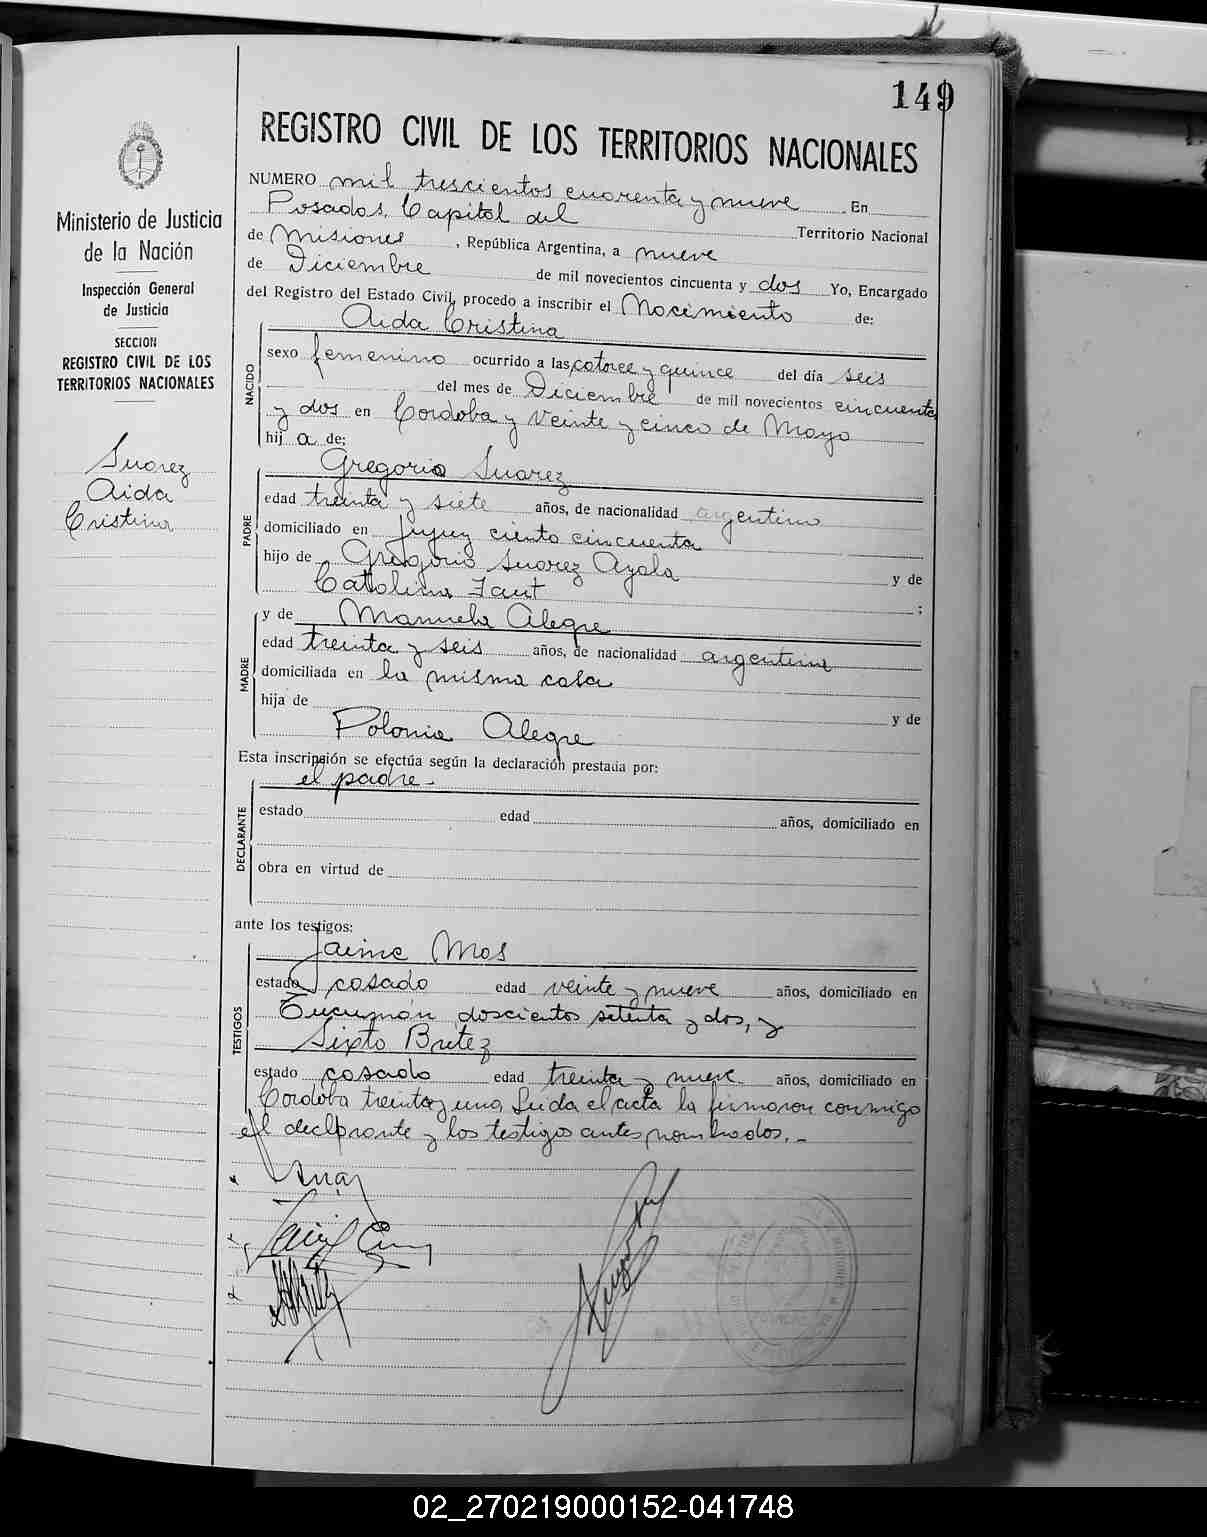 149
REGISTRO CIVIL DE LOS TERRITORIOS NACIONALES
Ministerio de Justicia
de la Nación
Inspección General
de Justicia
SECCION
REGISTRO CIVIL DE LOS
TERRITORIOS NACIONALES
Suarez
Aida
Cristina
NUMERO mil trescientos cuarenta y nueve En
Posadas, Capital del Territorio Nacional
de Misiones, República Argentina, a nueve
de Diciembre de mil novecientos cincuenta y dos Yo, Encargado
del Registro del Estado Civil, procedo a inscribir el Nacimiento de:
Aida Cristina
NACIDO
sexo femenino ocurrido a las catorce y quince del día seis
del mes de Diciembre de mil novecientos cincuenta
y dos en Cordoba y Veinte y cinco de Mayo
hij a de:
Gregorio Suarez
PADRE
edad treinta y siete años, de nacionalidad argentina
domiciliado en Jujuy ciento cincuenta
hijo de Gregorio Suarez Ayala y de
Catalina ;
y de Manuela Alegre
MADRE
edad treinta y seis años, de nacionalidad argentina
domiciliada en la misma casa
hija de y de
Polonia Alegre
Esta inscripción se efectúa según la declaración prestada por:
el padre.-
DECLARANTE
estado edad años, domiciliado en
obra en virtud de
ante los testigos:
Jaime Mos
TESTIGOS
estado casado edad veinte y nueve años, domiciliado en
Tucumán doscientos setenta y dos, y
Sixto Britez
estado casado edad treinta y nueve años, domiciliado en
Cordoba treinta y uno, Leida el acta la firmaron conmigo
el declarante y los testigos antes nombrados.-
02_270219000152-041748